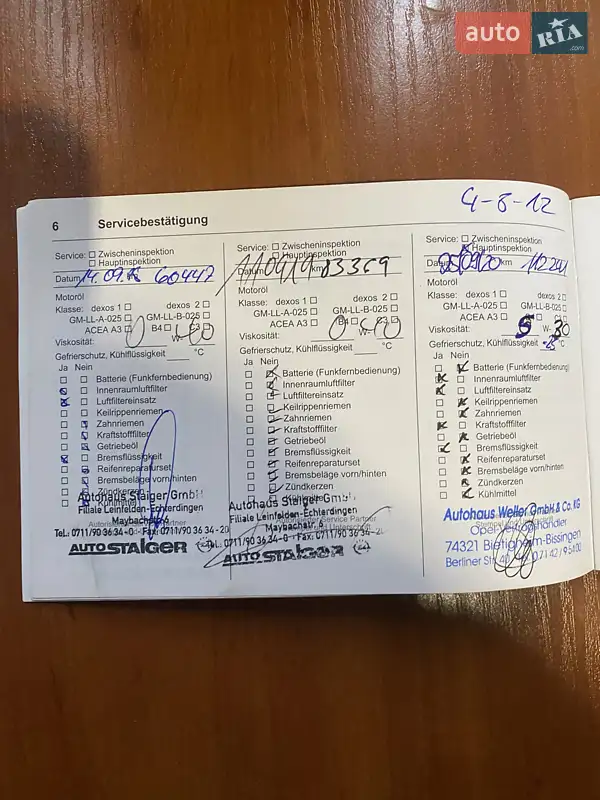 auto RIA .com
4-8-12
6 Servicebestätigung
Service: Zwischeninspektion
Hauptinspektion
Datum 14.09. 60447
Motoröl
Klasse: dexos 1 dexos 2
GM-LL-A-025 GM-LL-B-025
ACEA A3 B4 C3
Viskosität: 0 W- 40
Gefrierschutz, Kühlflüssigkeit °C
Ja Nein
Batterie (Funkfernbedienung)
Innenraumluftfilter
Luftfiltereinsatz
Keilrippenriemen
Zahnriemen
Kraftstofffilter
Getriebeöl
Bremsflüssigkeit
Reifenreparaturset
Bremsbeläge vorn/hinten
Zündkerzen
Kühlmittel
Autohaus Staiger GmbH
Filiale Leinfelden-Echterdingen
Maybachstr.
Tel.: 0711/90 36 34-0 Fax: 0711/90 36 34-20
AUTO STAIGER
Service: Zwischeninspektion
Hauptinspektion
Datum 110419 km 83369
Motoröl
Klasse: dexos 1 dexos 2
GM-LL-A-025 GM-LL-B-025
ACEA A3 B4 C3
Viskosität: 0 W- 40
Gefrierschutz, Kühlflüssigkeit °C
Ja Nein
Batterie (Funkfernbedienung)
Innenraumluftfilter
Luftfiltereinsatz
Keilrippenriemen
Zahnriemen
Kraftstofffilter
Getriebeöl
Bremsflüssigkeit
Reifenreparaturset
Bremsbeläge vorn/hinten
Zündkerzen
Kühlmittel
Autohaus Staiger GmbH
Filiale Leinfelden-Echterdingen
Maybachstr. 6
Tel.: 0711/90 36 34-0 Fax: 0711/90 36 34-2
AUTO STAIGER
Service: Zwischeninspektion
Hauptinspektion
Datum 25/09/20 km 112241
Motoröl
Klasse: dexos 1 dexos 2
GM-LL-A-025 GM-LL-B-025
ACEA A3 B4 C3
Viskosität: 5 W- 30
Gefrierschutz, Kühlflüssigkeit °C
Ja Nein
Batterie (Funkfernbedienung)
Innenraumluftfilter
Luftfiltereinsatz
Keilrippenriemen
Zahnriemen
Kraftstofffilter
Getriebeöl
Bremsflüssigkeit
Reifenreparaturset
Bremsbeläge vorn/hinten
Zündkerzen
Kühlmittel
Autohaus Weller GmbH & Co. KG
Opel
74321 Bietigheim-Bissingen
Berliner Str. 40